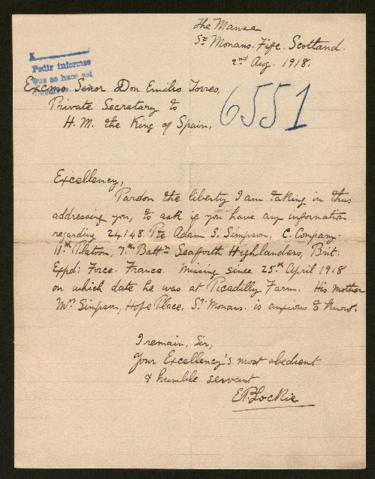 The Manse
St Monans. Fife. Scotland.
2nd Aug. 1918.
Pedir informes
que se hace así
Excmo. Señor Don Emilio Torres,
Private Secretary to
H. M. the King of Spain,
6551
Excellency,
Pardon the liberty I am taking in thus
addressing you, to ask if you have any information
regarding 24148. Pte Adam S. Simpson, C. Company.
11th Platoon, 7th Battn Seaforth Highlanders, Brit.
Expd: Force. France. Missing since 25th April 1918
on which date he was at Picadilly Farm. His mother
Mrs Simpson, Hope Place, St Monans. is anxious to know.
I remain, Sir,
Your Excellency's most obedient
& humble servant
Lockie